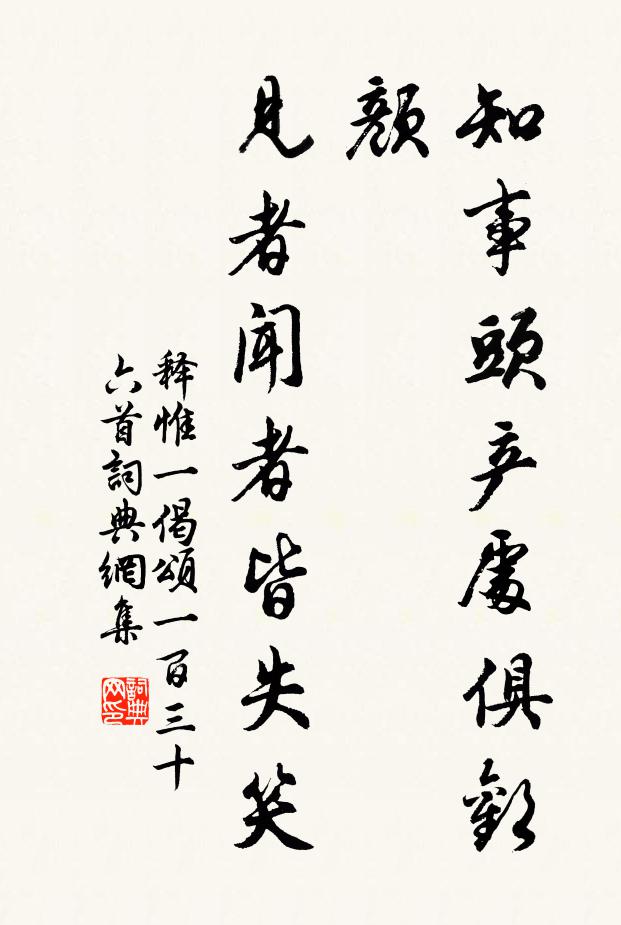 知事頭产處俱歡
顏
見者聞者皆失笑
释惟一偈頌一百三十
六首詞典網集
詞典
网印